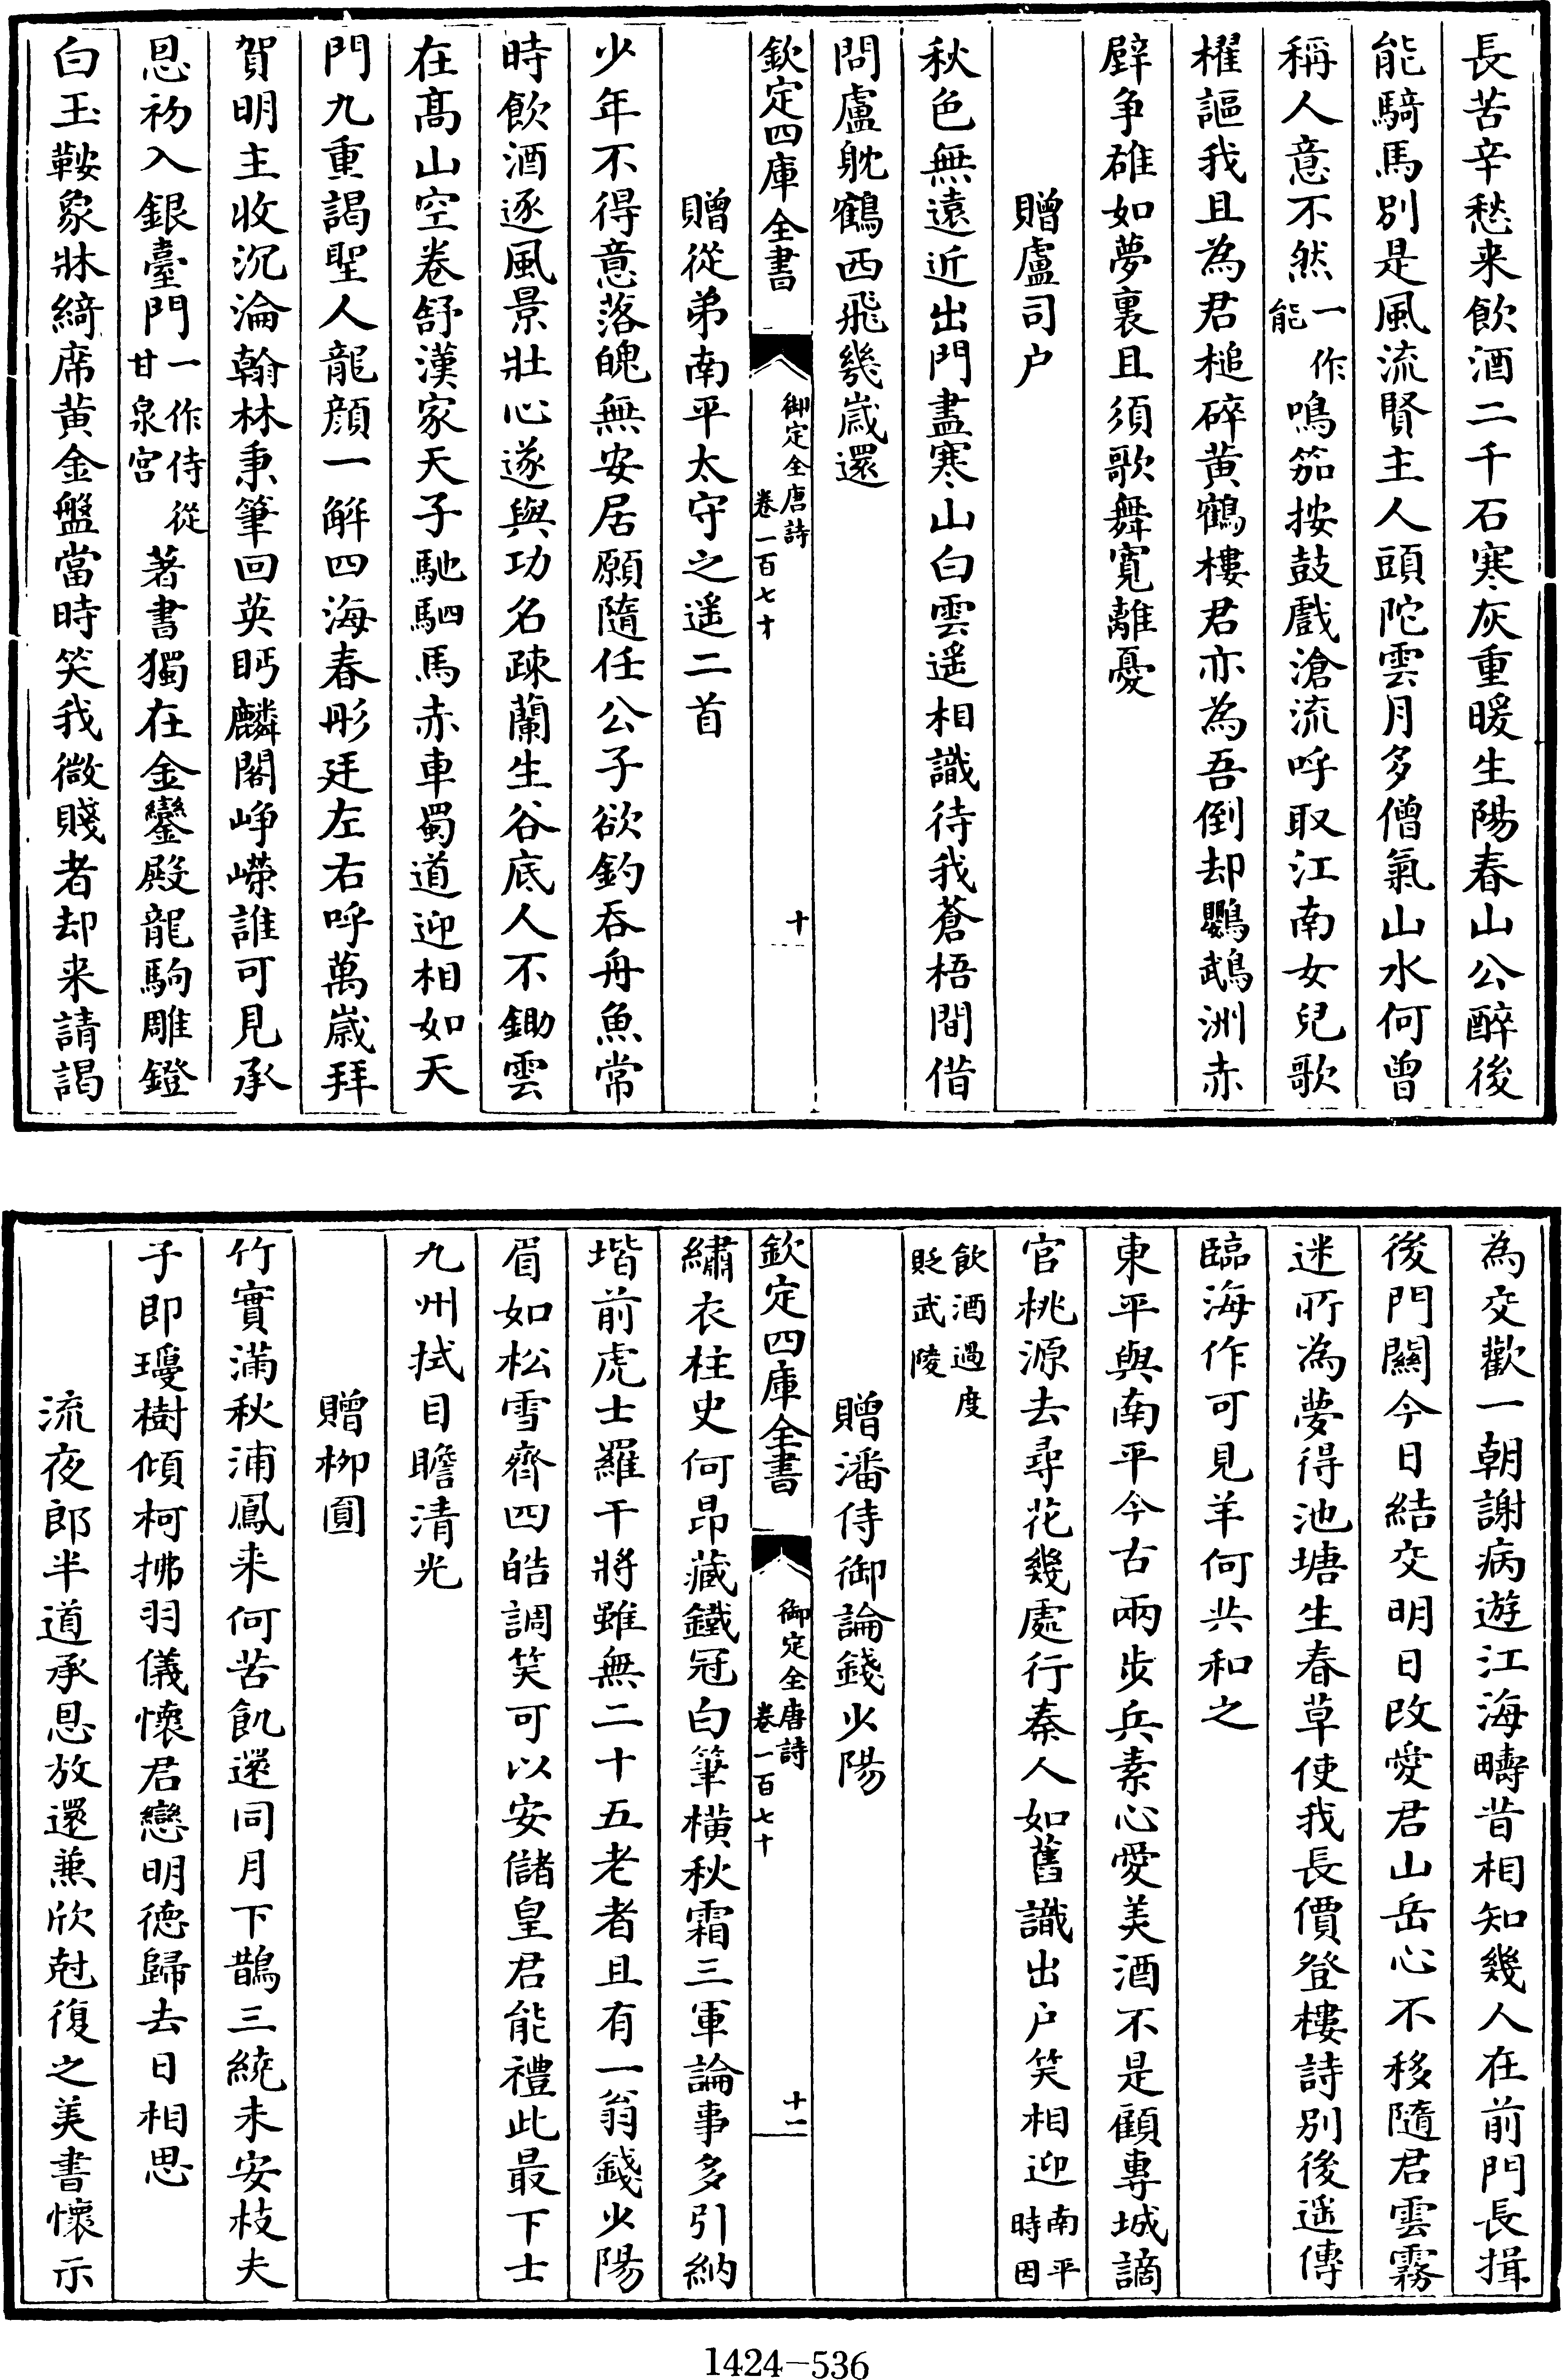 長苦辛愁来飲酒二千石寒灰重暖生陽春山公醉後
能騎馬別是風流賢主人頭陀雲月多僧氣山水何曾
稱人意不然一作能鳴笳按鼓戲滄流呼取江南女兒歌
櫂謳我且為君槌碎黄鶴樓君亦為吾倒却鸚鵡洲赤
壁争雄如夢裏且須歌舞寛離憂
贈盧司户
秋色無遠近出門盡寒山白雲遥相識待我蒼梧間借
問盧躭鶴西飛幾嵗還
欽定四庫全書 御定全唐詩 卷一百七十 十
贈從弟南平太守之遥二首
少年不得意落魄無安居願隨任公子欲釣吞舟魚常
時飲酒逐風景壯心遂與功名疎蘭生谷底人不鋤雲
在髙山空卷舒漢家天子馳駟馬赤車蜀道迎相如天
門九重謁聖人龍顔一解四海春彤廷左右呼萬嵗拜
賀明主收沉淪翰林秉筆回英眄麟閣崢嶸誰可見承
恩初入銀臺門一作侍從甘泉宫著書獨在金鑾殿龍駒雕鐙
白玉鞍象牀綺席黄金盤當時笑我微賤者却来請謁
為交歡一朝謝病遊江海疇昔相知幾人在前門長揖
後門闗今日結交明日改愛君山岳心不移隨君雲霧
迷所為夢得池塘生春草使我長價登樓詩別後遥傳
臨海作可見羊何共和之
東平與南平今古兩步兵素心愛美酒不是顧專城謫
官桃源去尋花幾處行秦人如舊識出户笑相迎南平時因
飲酒過度貶武陵
贈潘侍御論錢少陽
欽定四庫全書 御定全唐詩 卷一百七十 十一
繡衣柱史何昂藏鐵冠白筆横秋霜三軍論事多引納
堦前虎士羅干將雖無二十五老者且有一翁錢少陽
眉如松雪齊四皓調笑可以安儲皇君能禮此最下士
九州拭目瞻清光
贈柳圓
竹實滿秋浦鳳来何苦飢還同月下鵲三繞未安枝夫
子即瓊樹傾柯拂羽儀懷君戀明德歸去日相思
流夜郎半道承恩放還兼欣尅復之美書懷示
1424-536